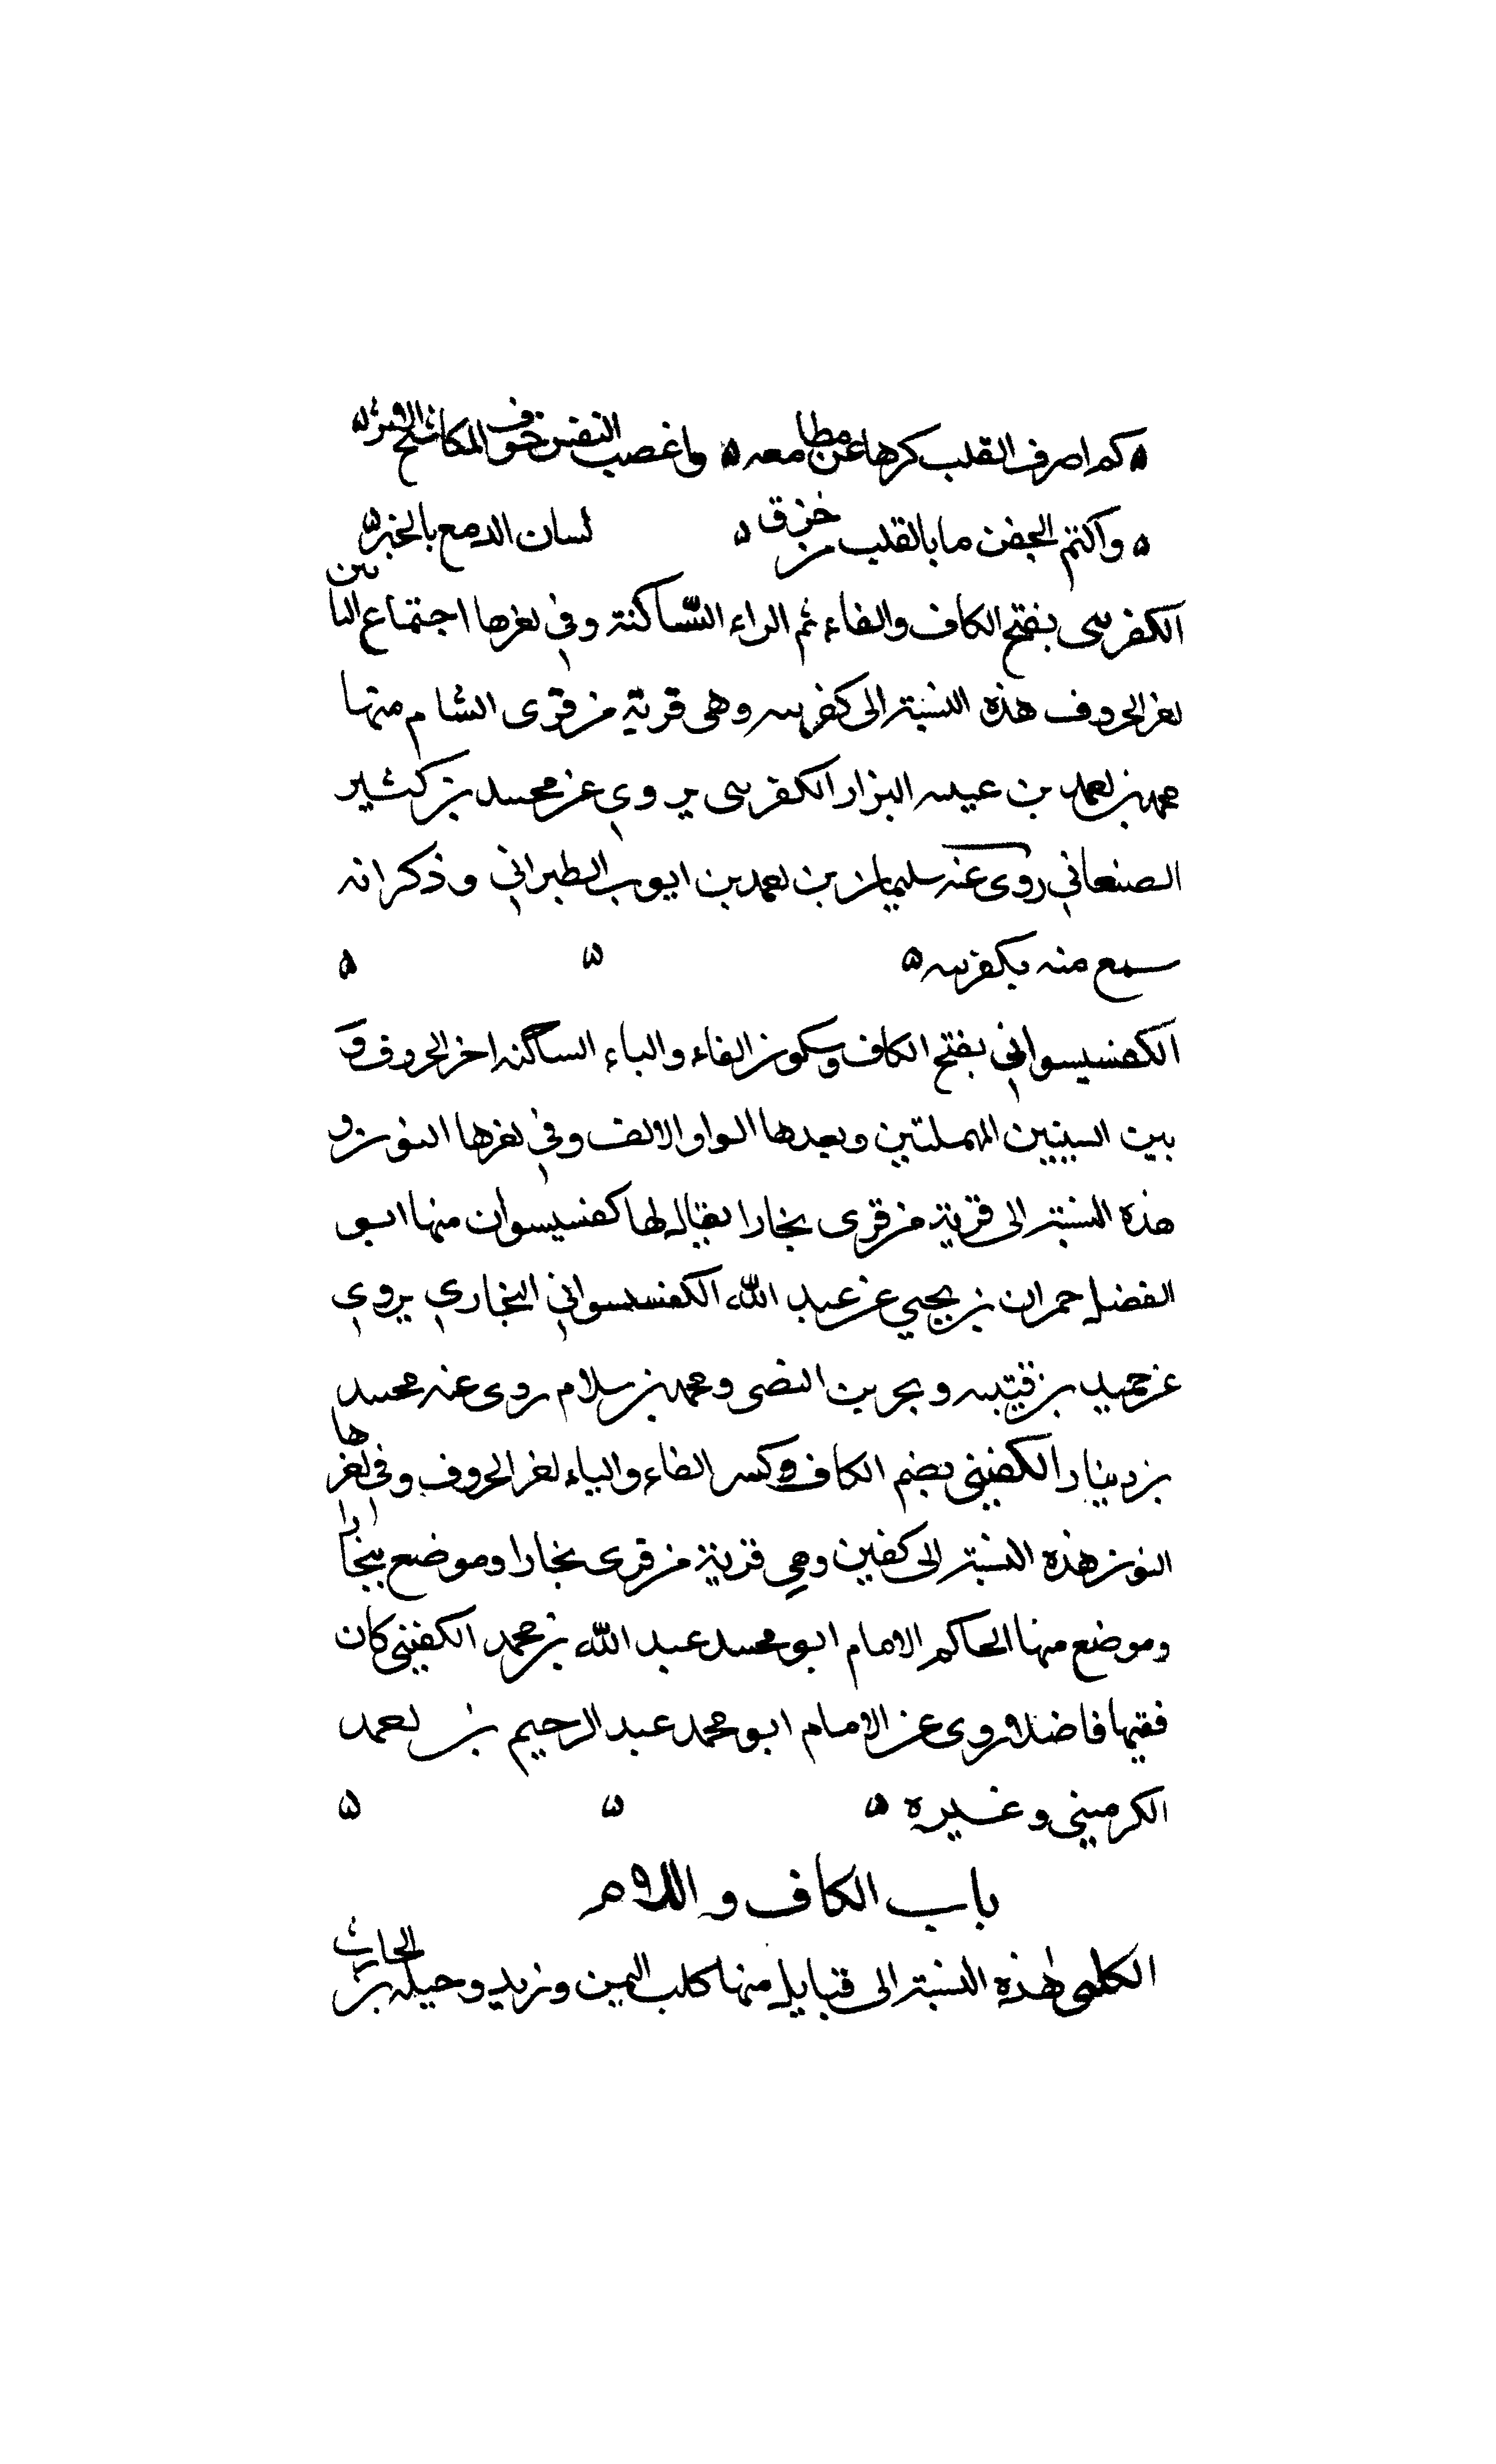 كم اصرف القلب كرها عن مطامعه واغصب النفس خوف المكاشح
واكتم الجفن ما بالقلب من لسان الدمع بالخبر
الكفرسى بفتح الكاف والفاء ثم الراء الساكنة وفي اخرها اجتماع اليائين
اخر الحروف هذه النسبة الى كفربيه وهى قرية من قرى الشام منها
محمد بن احمد بن عيسى البزار الكفربى يروي عن محمد بن كثير
الصنعاني روى عنه سليمان بن احمد بن ايوب الطبراني وذكر انه
سمع منه بكفربيه
الكفسيسواني بفتح الكاف وسكون الفاء والياء الساكنه اخر الحروف و
بين السينين المهملتين وبعدها الواو الالف وفي اخرها النون و
هذه النسبة الى قرية من قرى بخارا يقال لها كفسيسوان منها ابو
الفضل حمران بن يحيي عن عبد الله الكفسيسواني البخاري يروي
عن حميد بن قتيبه و بن النضر ومحمد بن سلام روى عنه محمد
بن دينار الكفينى بضم الكاف وكسر الفاء والياء اخر الحروف وفى اخرها
النون هذه النسبة الى كفين وهي قرية من قرى بخارا وموضع ببخارا
وموضع منها الحاكم الامام ابو محمد عبد الله بن محمد الكفينى كان
فقيها فاضلا روى عن الامام ابو محمد عبد الرحيم بن احمد
الكرميني وغيره
باب الكاف واللام
الكلبى هذه النسبة الى قبايل منها كلب اليمن و بن الحارث